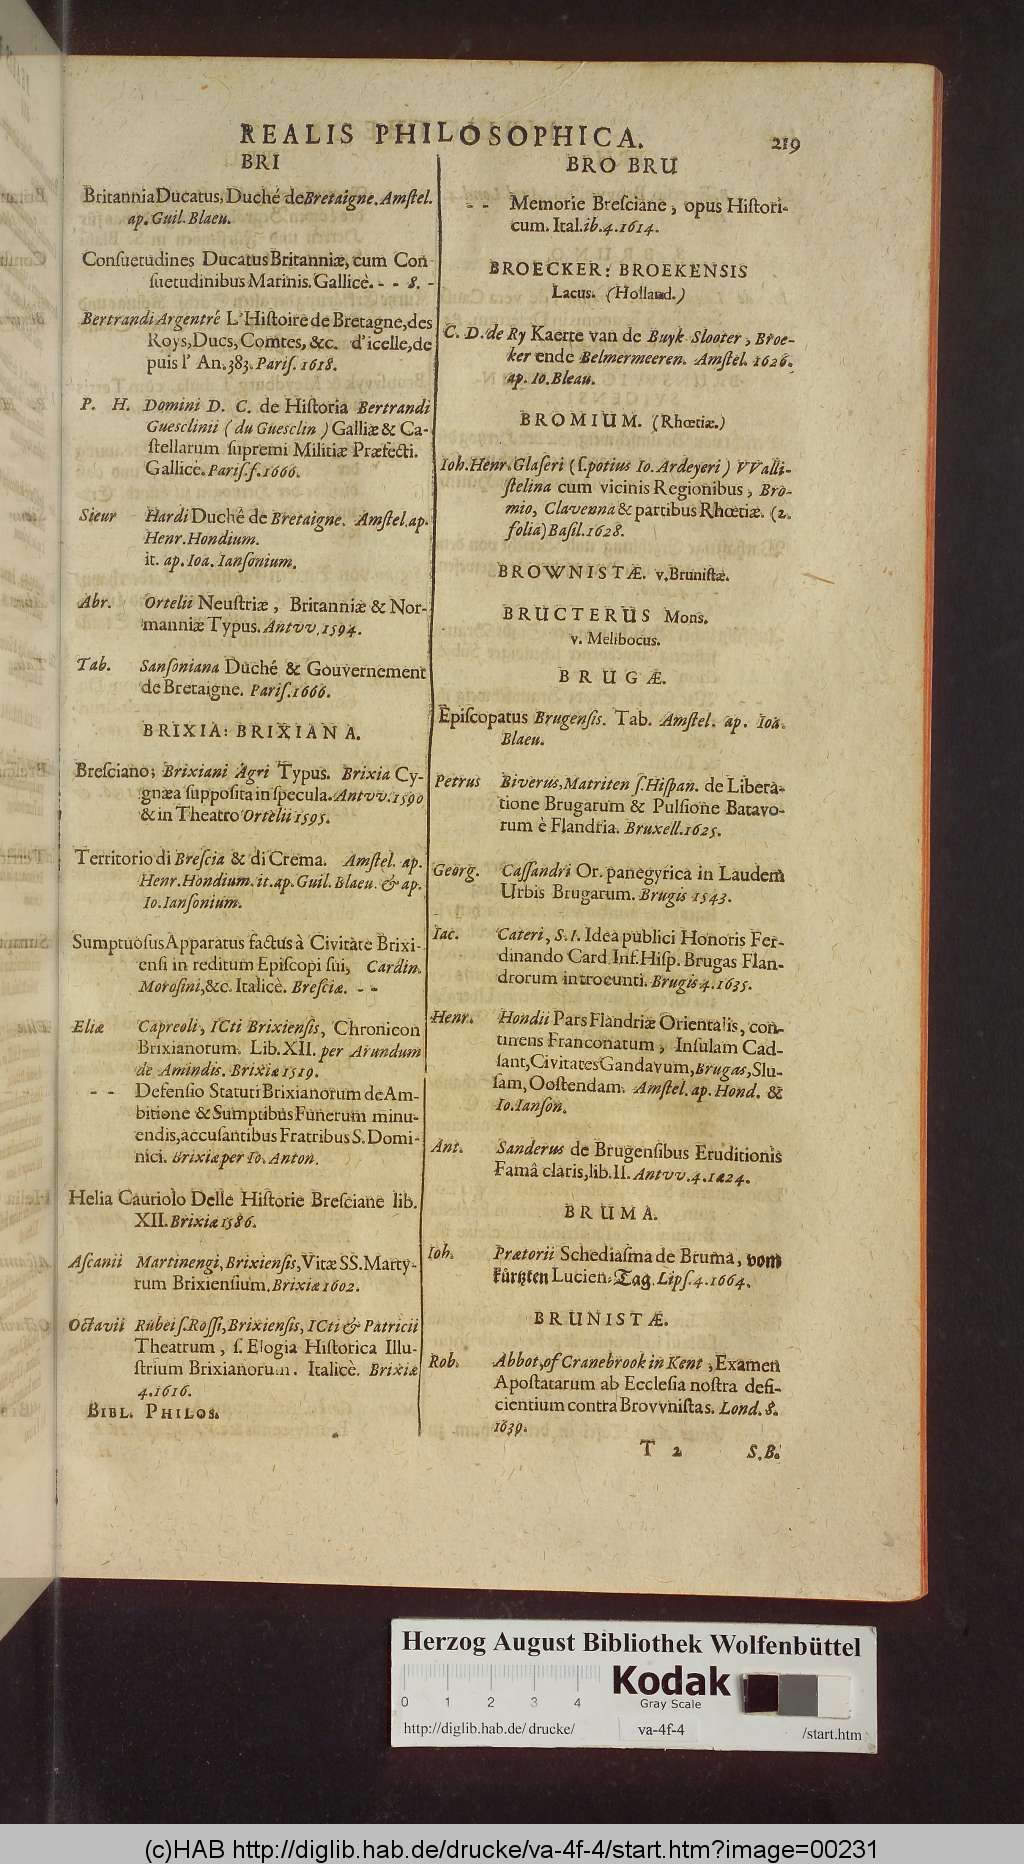 REALIS PHILOSOPHICA.
219
BRI
Britannia Ducatus, Duché de Bretaigne. Amſtel.
ap. Guil. Blaeu.
Conſuetudines Ducatus Britanniæ, cum Con
ſuetudinibus Marinis. Gallicè. - - 8. -
Bertrandi Argentré L'Hiſtoire de Bretagne, des
Roys, Ducs, Comtes, &c. d'icelle, de
puis l' An. 383. Pariſ. 1618.
P. H. Domini D. C. de Hiſtoria Bertrandi
Gueſclinii (du Gueſclin) Galliæ & Ca-
ſtellarum ſupremi Militiæ Præfecti.
Gallicè. Pariſ. f. 1666.
Sieur Hardi Duché de Bretaigne. Amſtel. ap.
Henr. Hondium.
it. ap. Ioa. Ianſonium.
Abr. Ortelii Neuſtriæ, Britanniæ & Nor-
manniæ Typus. Antvv. 1594.
Tab. Sanſoniana Duché & Gouvernement
de Bretaigne. Pariſ. 1666.
BRIXIA: BRIXIANA.
Breſciano; Brixiani Agri Typus. Brixia Cy-
gnæa ſuppoſita in ſpecula. Antvv. 1590
& in Theatro Ortelii 1595.
Territorio di Breſcia & di Crema. Amſtel. ap.
Henr. Hondium. it. ap. Guil. Blaeu. & ap.
Io. Ianſonium.
Sumptuoſus Apparatus factus à Civitate Brixi-
enſi in reditum Epiſcopi ſui, Cardin.
Moroſini, &c. Italicè. Breſciæ. - -
Eliæ Capreoli, ICti Brixienſis, Chronicon
Brixianorum. Lib. XII. per Arundum
de Amindis. Brixiæ 1519.
- - Defenſio Statuti Brixianorum de Am-
bitione & Sumptibus Funerum minu-
endis, accuſantibus Fratribus S. Domi-
nici. Brixiæ per Io. Anton.
Helia Cauriolo Delle Hiſtorie Breſciane lib.
XII. Brixiæ 1586.
Aſcanii Martinengi, Brixienſis, Vitæ SS. Marty-
rum Brixienſium. Brixiæ 1602.
Octavii Rubei ſ. Roſſi, Brixienſis, ICti & Patricii
Theatrum, ſ. Elogia Hiſtorica Illu-
ſtrium Brixianorum. Italicè. Brixiæ
4. 1616.
BIBL. PHILOS.
BRO BRU
- - Memorie Breſciane, opus Hiſtori-
cum. Ital. ib. 4. 1614.
BROECKER: BROEKENSIS
Lacus. (Holland.)
C. D. de Ry Kaerte van de Buyk Slooter, Broe-
ker ende Belmermeeren. Amſtel. 1626.
ap. Io. Bleau.
BROMIUM. (Rhœtiæ.)
Ioh. Henr. Glaſeri (ſ. potius Io. Ardeyeri) VValli-
ſtelina cum vicinis Regionibus, Bro-
mio, Clavenna & partibus Rhœtiæ. (2.
folia) Baſil. 1628.
BROWNISTÆ. v. Bruniſtæ.
BRUCTERUS Mons.
v. Melibocus.
BRUGÆ.
Epiſcopatus Brugenſis. Tab. Amſtel. ap. Ioa.
Blaeu.
Petrus Biverus, Matriten ſ. Hiſpan. de Libera-
tione Brugarum & Pulſione Batavo-
rum è Flandria. Bruxell. 1625.
Georg. Caſſandri Or. panegyrica in Laudem
Urbis Brugarum. Brugis 1543.
Iac. Cateri, S. I. Idea publici Honoris Fer-
dinando Card. Inf. Hiſp. Brugas Flan-
drorum introeunti. Brugis 4. 1635.
Henr. Hondii Pars Flandriæ Orientalis, con-
tinens Franconatum, Inſulam Cad-
ſant, Civitates Gandavum, Brugas, Slu-
ſam, Ooſtendam. Amſtel. ap. Hond. &
Io. Ianſon.
Ant. Sanderus de Brugenſibus Eruditionis
Famâ claris, lib. II. Antvv. 4. 1624.
BRUMA.
Ioh. Prætorii Schediaſma de Bruma, vom
kürtzten Lucien-Tag. Lipſ. 4. 1664.
BRUNISTÆ.
Rob. Abbot, of Cranebrook in Kent, Examen
Apoſtatarum ab Eccleſia noſtra defi-
cientium contra Brovvniſtas. Lond. 8.
1639.
T 2 S. B.
Herzog August Bibliothek Wolfenbüttel
Kodak
Gray Scale
0 1 2 3 4
http://diglib.hab.de/drucke/ va-4f-4 /start.htm
(c)HAB http://diglib.hab.de/drucke/va-4f-4/start.htm?image=00231